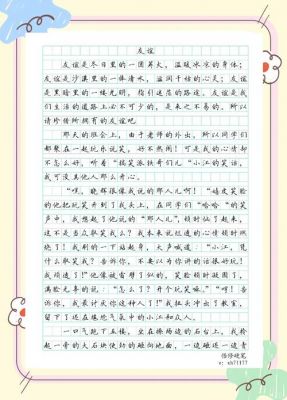 友谊
友谊是冬日里的一团篝火，温暖冰凉的身体；
友谊是沙漠里的一捧清水，滋润干枯的心灵；友谊
是黑暗里的一缕光明，指引迷茫的路途。友谊是我
们生活的道路上必不可少的，是来之不易的。所以
请珍惜所拥有的友谊吧
那天的班会上，由于老师的外出，所以同学们
都聚在一起玩乐说笑，好不热闹！可是我的心情却
不怎么好。听着“搞笑派掌门人”小江的笑话，
我可没其他人那么开心。
“嘿，晓辉很像我说的那人儿啊！”嬉皮笑脸
的他把玩笑开到了我头上，在同学们“哈哈”的笑
声中，我想起了他说的“那人儿”，顿时仙了起来，
这不是当众取笑我么？我本来就短速的心情顿时燃
烧了！我刷的一下站起身，大声喊道：“小江，凭
什么取笑我？告诉你，不要以为你讲的话很好玩！
我烦透了！”他像被雷劈了似的，笑脸顿时凝固了，
满脸无辜的说：“怎么了？开个玩笑嘛，”“哼！告
诉你，我最讨厌你这种人了！”我扭头冲出了教室，
留下了还在尴尬气氛中的小江和众人。
一口气跑下五楼，坐在操场边的石台上，我捡
起一旁的大石块使劲的砸向地面，一边砸还一边骂
悟修硬笔
v：xh71177